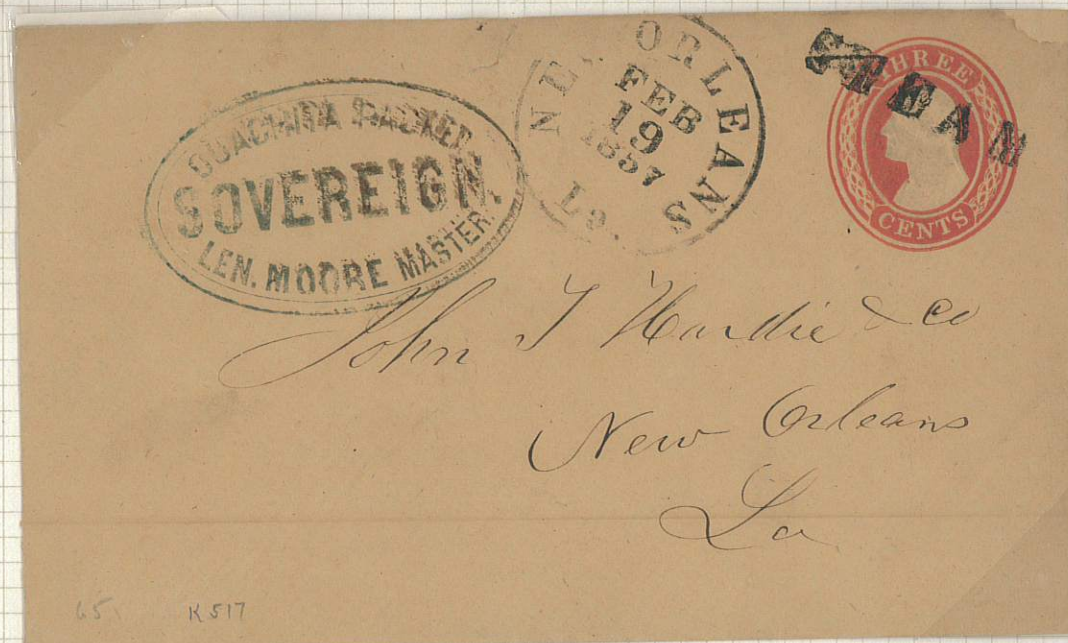 OUACHITA PACKET
SOVEREIGN.
LEN. MOORE MASTER.
NEW ORLEANS
FEB
19
1857
La.
STEAM
THREE
CENTS
John T Hardie & Co
New Orleans
La
65 K517